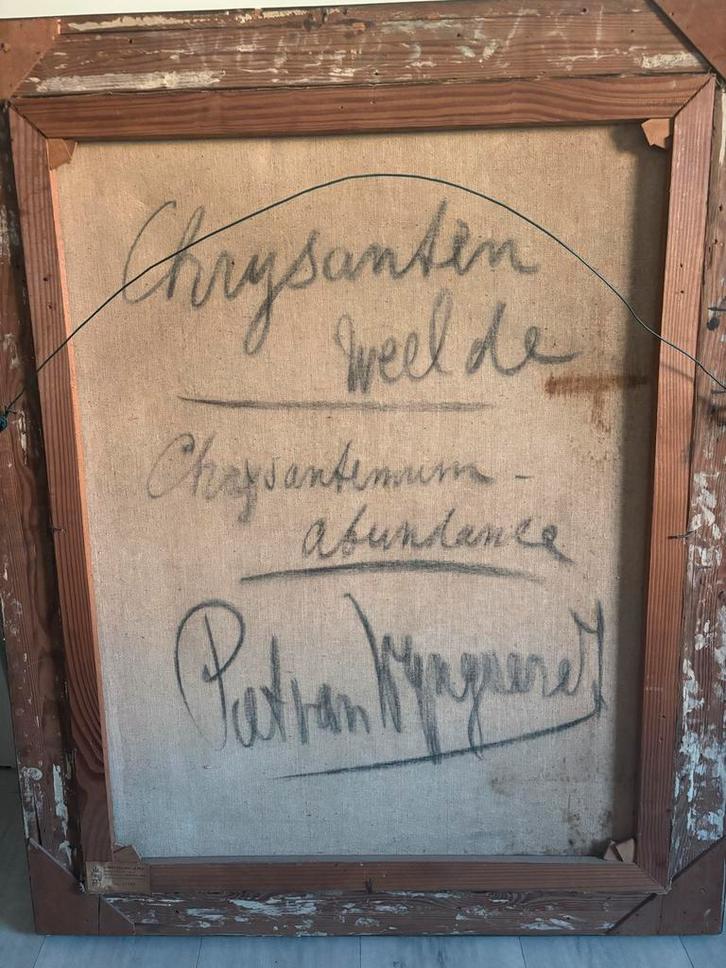 Chrysanten
weelde
Chrysantemum-
abundance
Piet van Wyngaerdt